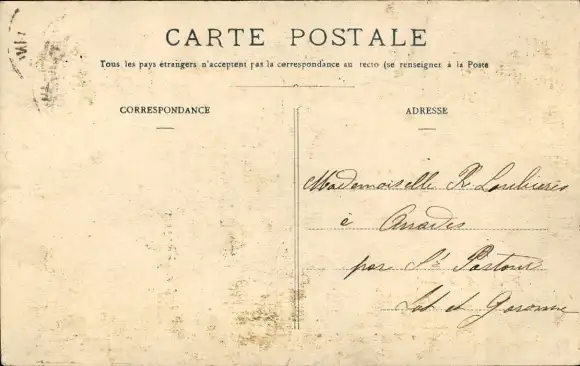 CARTE POSTALE
Tous les pays étrangers n'acceptent pas la correspondance au recto (se renseigner à la Poste
CORRESPONDANCE
ADRESSE
Mademoiselle R Loubières
à
par St Pastour
Lot et Garonne